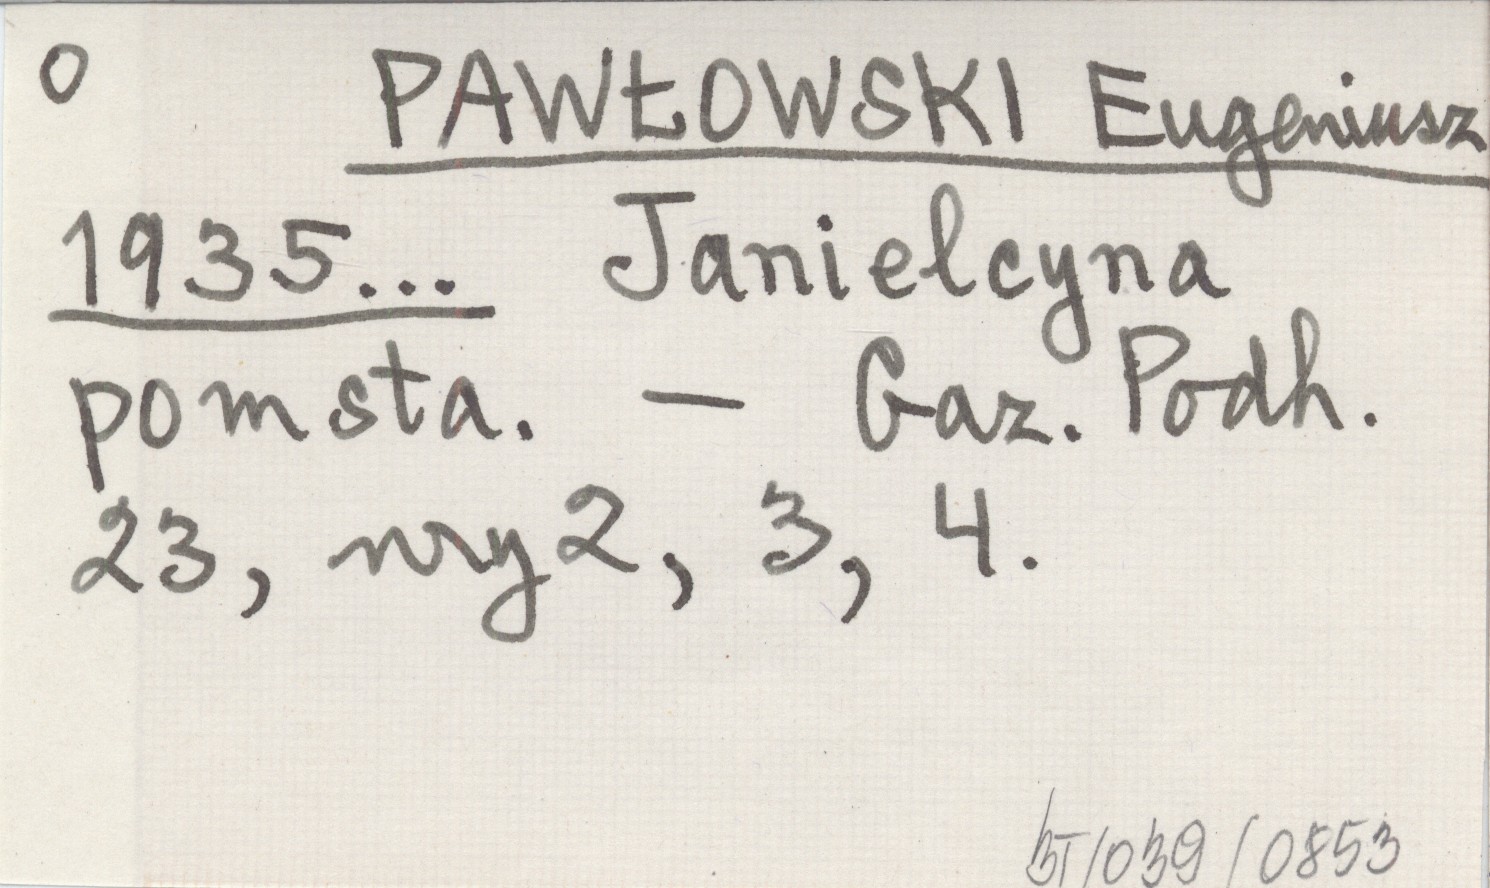 O PAWŁOWSKI Eugeniusz
1935... Janielcyna
pomsta. — Gaz. Podh.
23, nry 2, 3, 4.
BT/039/0853